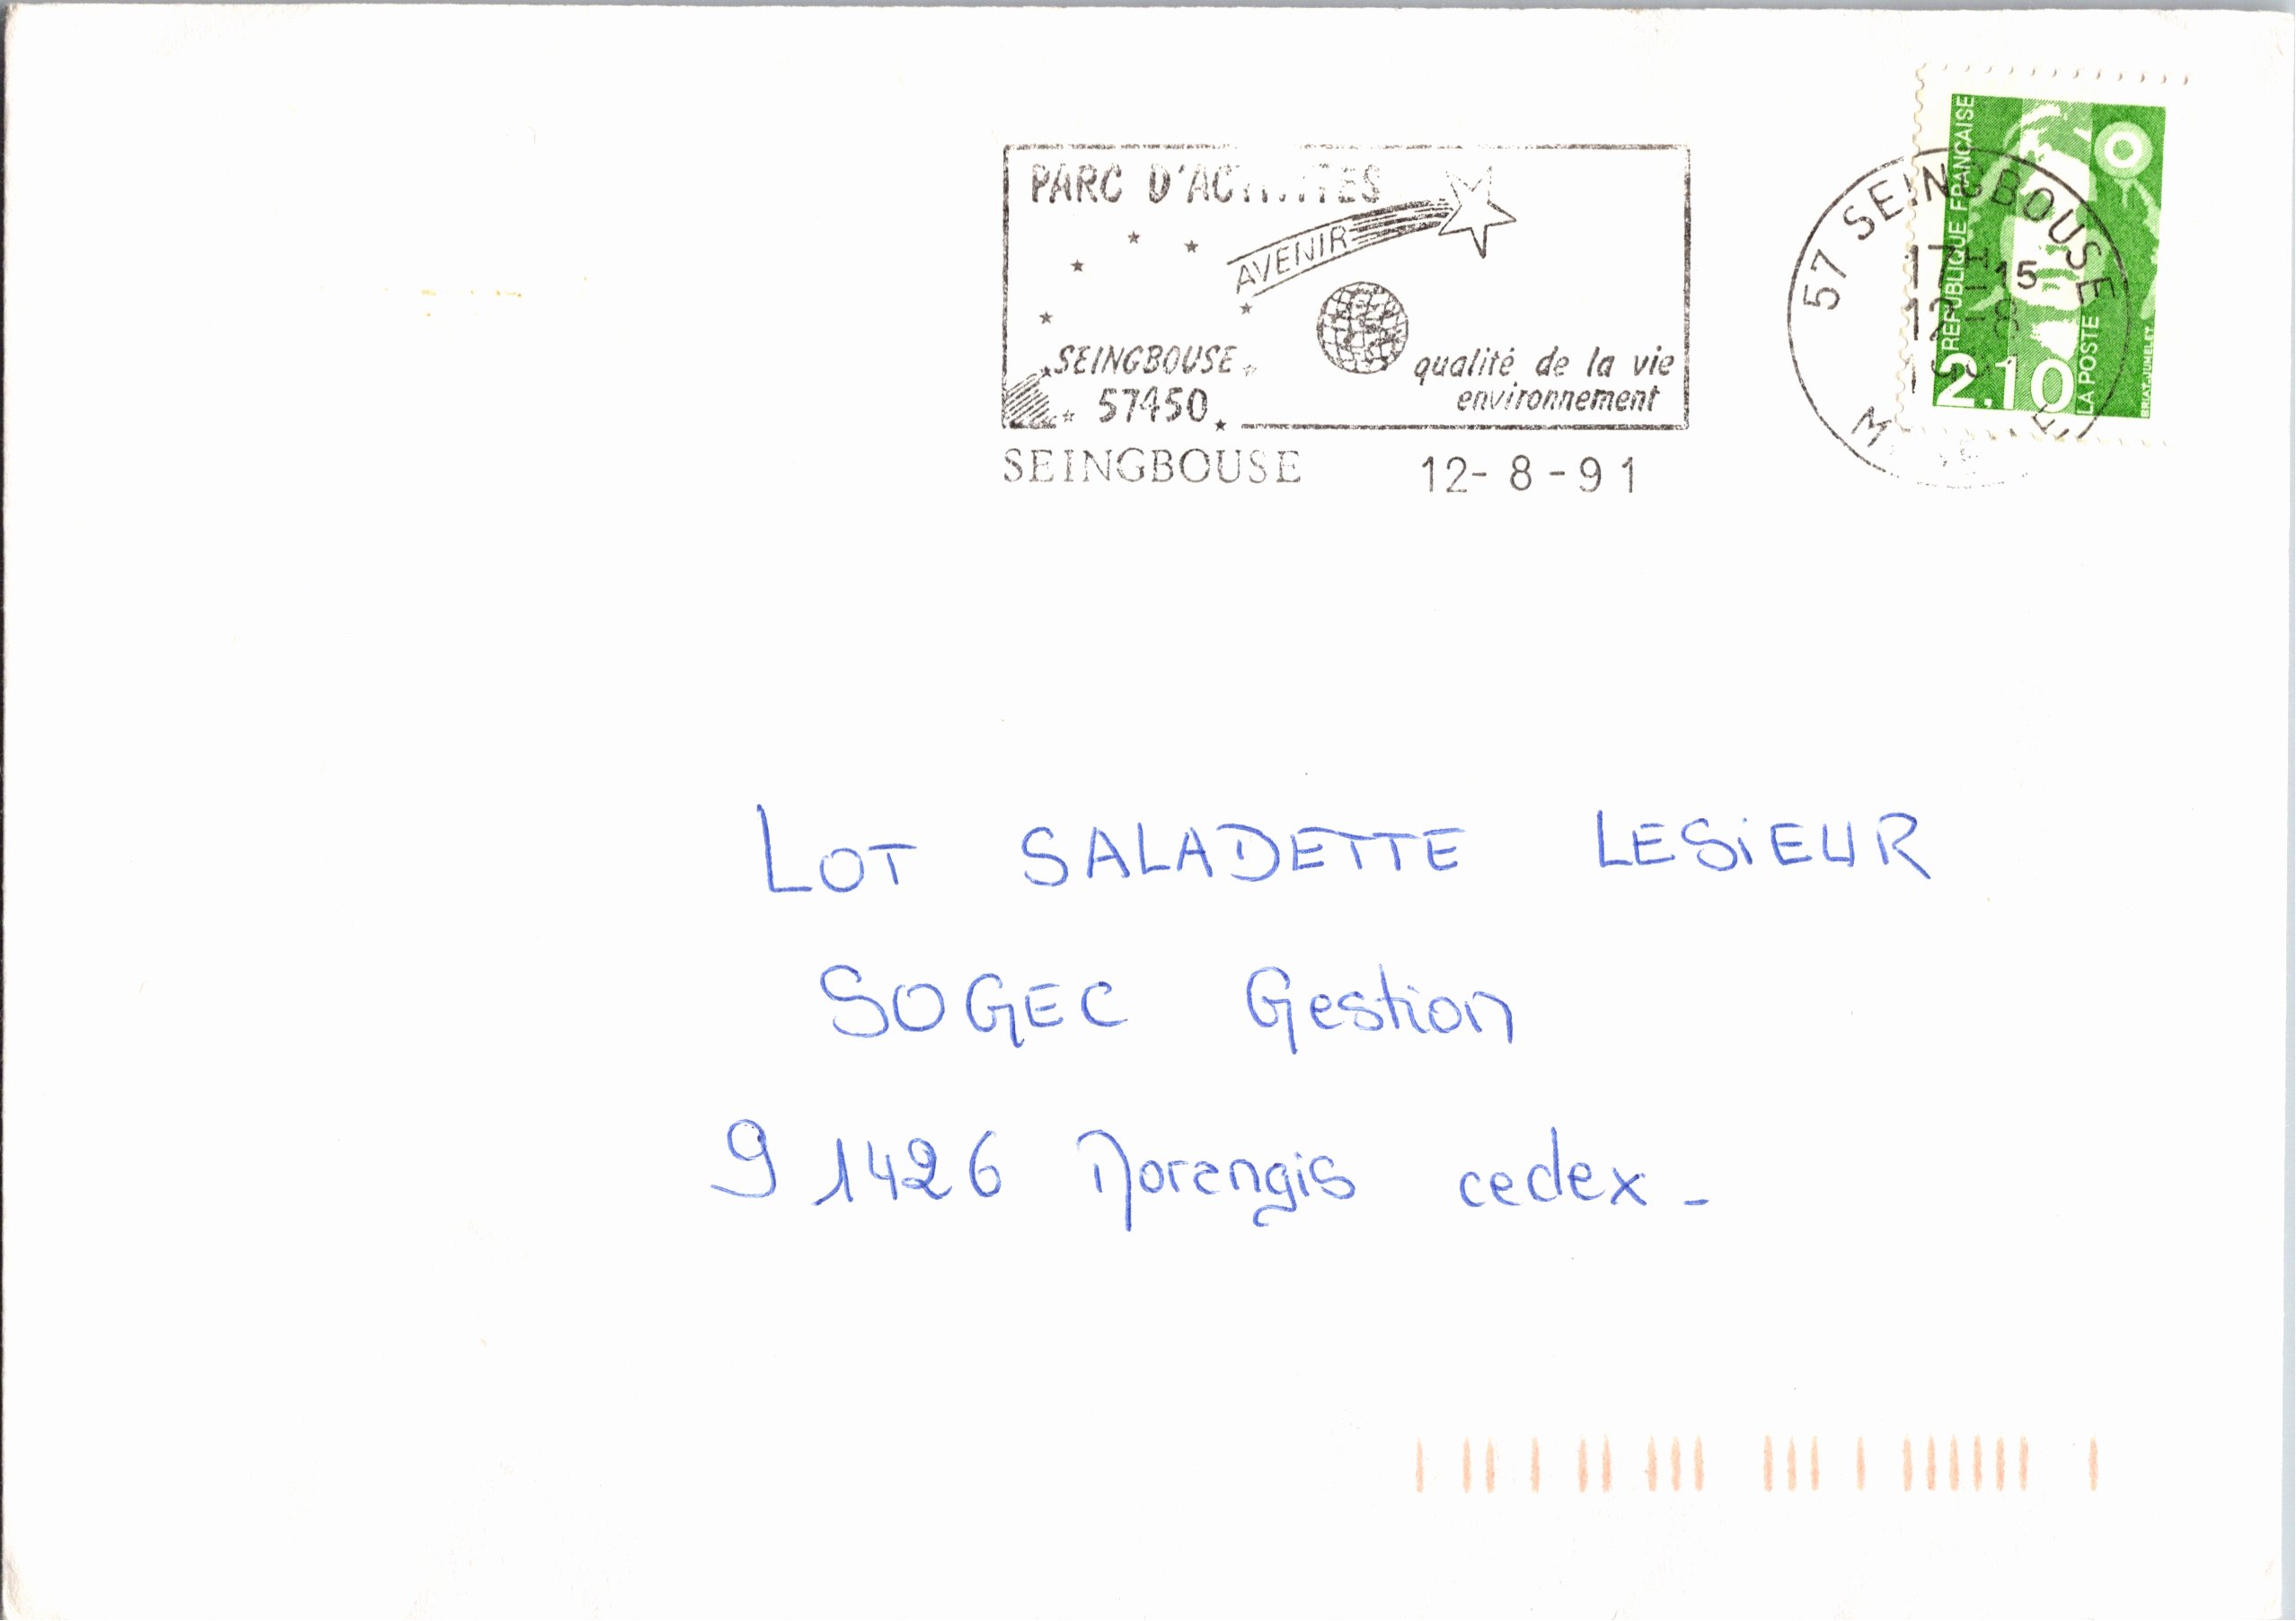 PARC D'ACTIVITES
AVENIR
SEINGBOUSE
57450
qualité de la vie
environnement
SEINGBOUSE 12-8-91
57 SEINGBOUSE
17H15
12-8
1991
MOSELLE
REPUBLIQUE FRANÇAISE
2.10
LA POSTE
BRIAT-JUMELET
LOT SALADETTE LESiEUR
SOGEC Gestion
91426 Morangis cedex -